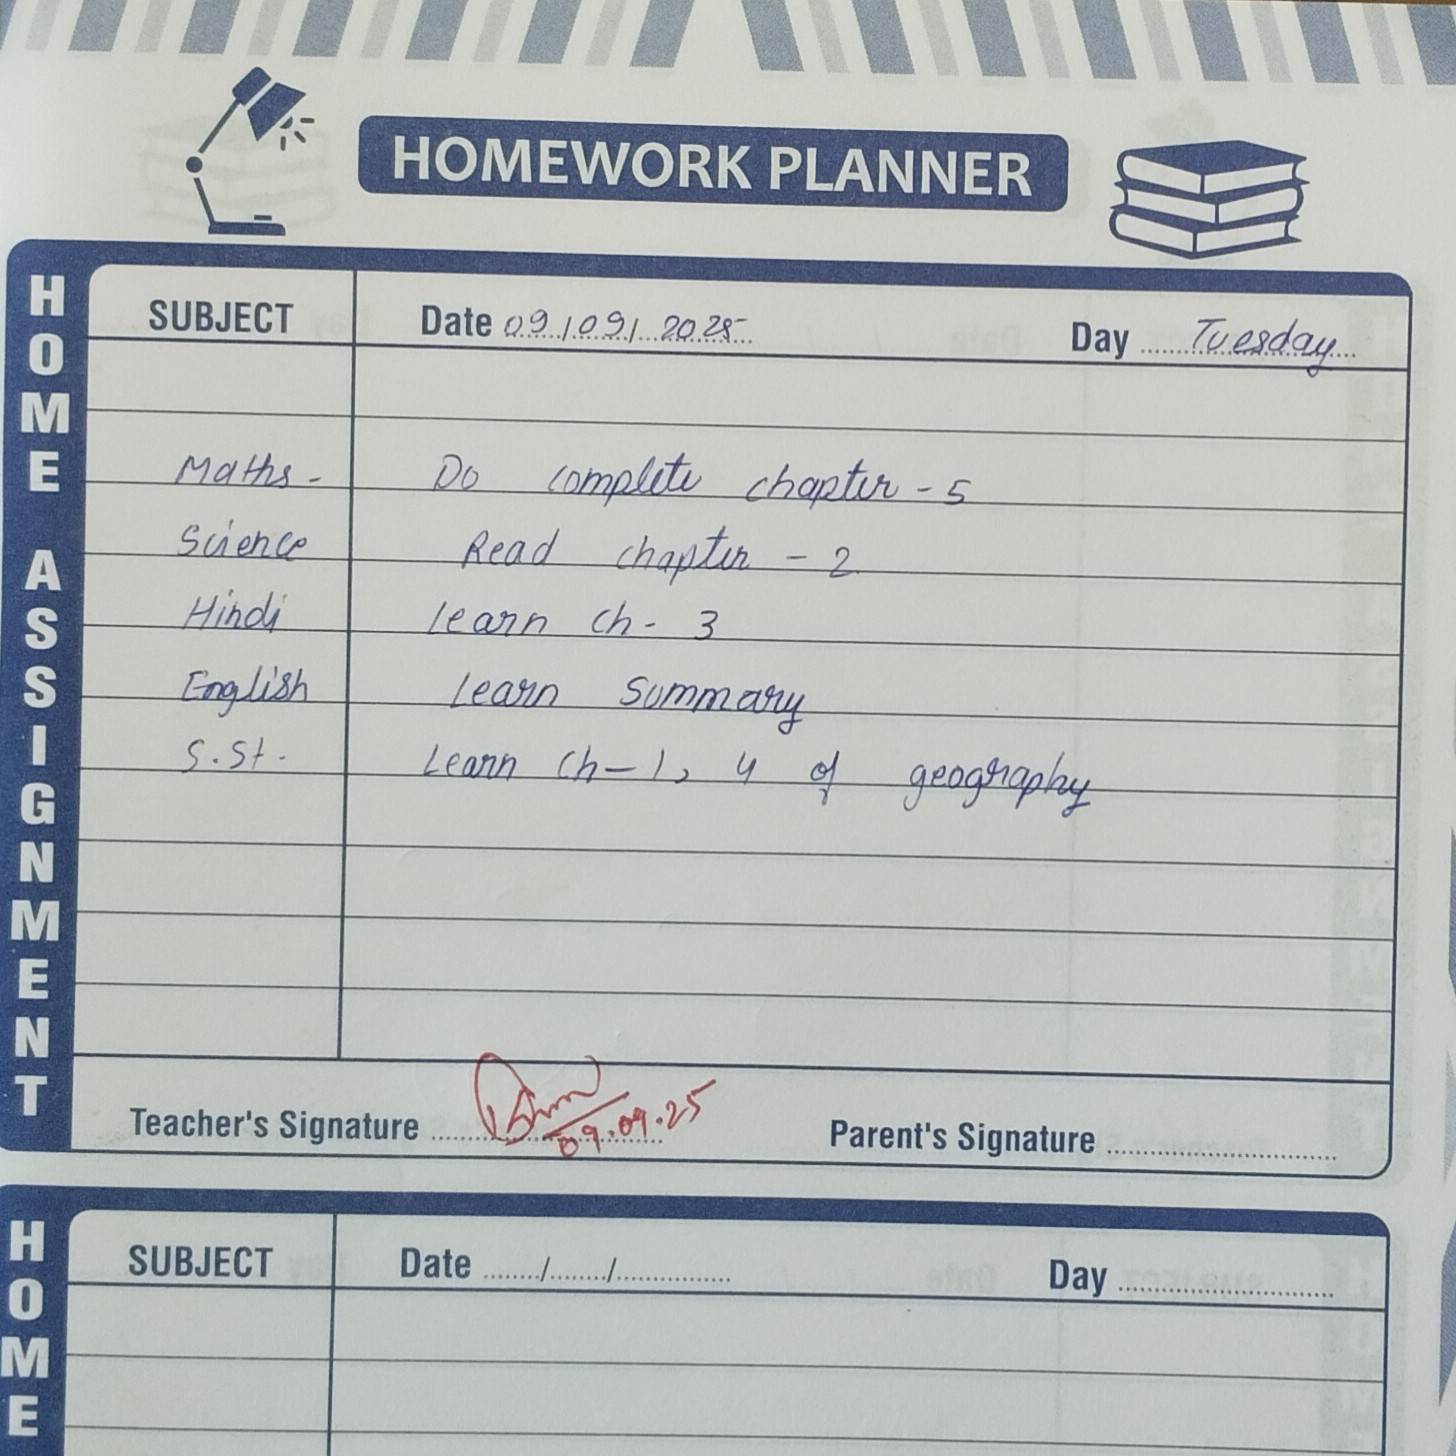 HOMEWORK PLANNER
HOME ASSIGNMENT
SUBJECT Date 09/09/2025 Day Tuesday
Maths - Do complete chapter - 5
Science Read chapter - 2
Hindi learn ch - 3
English Learn Summary
S.St. Learn Ch - 1, 4 of geography
Teacher's Signature 09.09.25 Parent's Signature
HOME
SUBJECT Date ......../......../................ Day